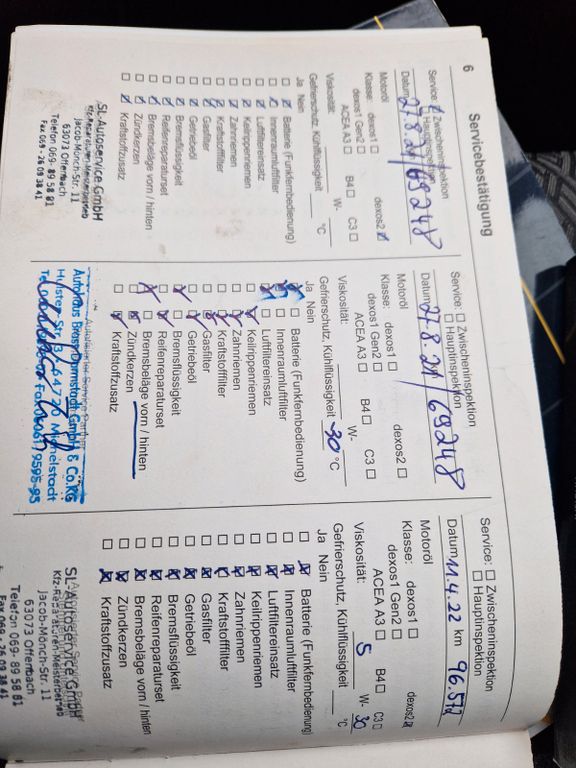 6
Servicebestätigung
Service: ☑ Zwischeninspektion
☐ Hauptinspektion
Datum 27.8.21 / 69248
Motoröl
Klasse: dexos1 ☐ dexos2 ☑
dexos1 Gen2 ☐
ACEA A3 ☐ B4 ☐ C3 ☐
Viskosität: W-
Gefrierschutz, Kühlflüssigkeit °C
Ja Nein
Batterie (Funkfernbedienung)
Innenraumluftfilter
Luftfiltereinsatz
Keilrippenriemen
Zahnriemen
Kraftstofffilter
Gasfilter
Getriebeöl
Bremsflüssigkeit
Reifenreparaturset
Bremsbeläge vorn / hinten
Zündkerzen
Kraftstoffzusatz
SL-Autoservice GmbH
Kfz-Reparaturen-Meisterbetrieb
Jacob-Mönch-Str. 11
63073 Offenbach
Telefon 069- 89 58 81
Fax 069 - 26 09 38 41
Service: ☐ Zwischeninspektion
☐ Hauptinspektion
Datum 27.8.21 / 69248
Motoröl
Klasse: dexos1 ☐ dexos2 ☐
dexos1 Gen2 ☐
ACEA A3 ☐ B4 ☐ C3 ☐
Viskosität: W-
Gefrierschutz, Kühlflüssigkeit -30 °C
Ja Nein
Batterie (Funkfernbedienung)
Innenraumluftfilter
Luftfiltereinsatz
Keilrippenriemen
Zahnriemen
Kraftstofffilter
Gasfilter
Getriebeöl
Bremsflüssigkeit
Reifenreparaturset
Bremsbeläge vorn / hinten
Zündkerzen
Kraftstoffzusatz
Autohaus Brass Darmstadt GmbH & Co.KG
Michelstadt
9595-95
Service: ☐ Zwischeninspektion
☐ Hauptinspektion
Datum 11.4.22 km 96.572
Motoröl
Klasse: dexos1 ☐ dexos2 ☒
dexos1 Gen2 ☐
ACEA A3 ☐ B4 ☐ C3 ☐
Viskosität: 5 W- 30
Gefrierschutz, Kühlflüssigkeit °C
Ja Nein
Batterie (Funkfernbedienung)
Innenraumluftfilter
Luftfiltereinsatz
Keilrippenriemen
Zahnriemen
Kraftstofffilter
Gasfilter
Getriebeöl
Bremsflüssigkeit
Reifenreparaturset
Bremsbeläge vorn / hinten
Zündkerzen
Kraftstoffzusatz
SL-Autoservice GmbH
Kfz-Reparaturen-Meisterbetrieb
Jacob-Mönch-Str. 11
63073 Offenbach
Telefon 069- 89 58 81
Fax 069 - 26 09 38 41